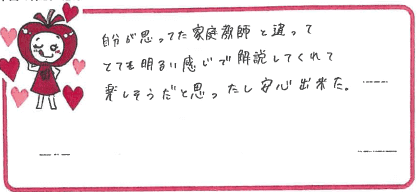 自分が思ってた家庭教師と違って
とても明るい感じで解説してくれて
楽しそうだと思ったし安心出来た。